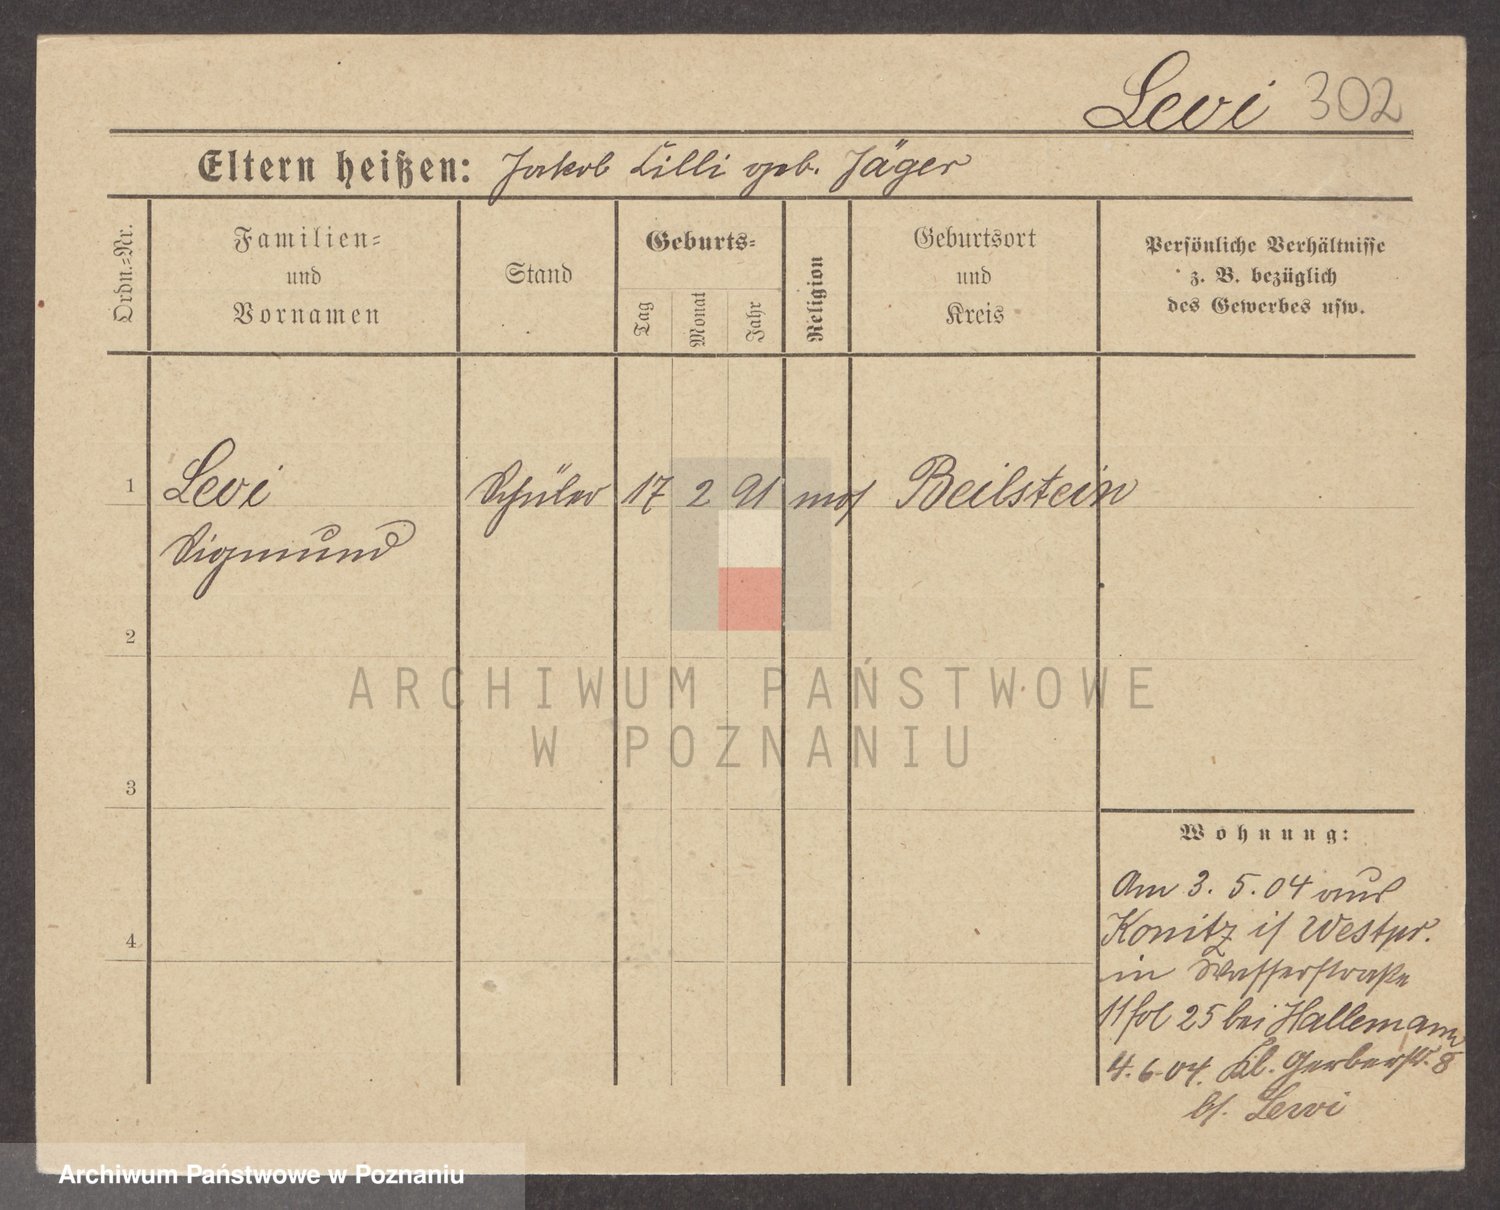 Levi 302
Eltern heißen: Jakob Lilli geb. Jäger
Ordn.-Nr.
Familien-
und
Vornamen
Stand
Geburts-
Tag
Monat
Jahr
Religion
Geburtsort
und
Kreis
Persönliche Verhältnisse
z. B. bezüglich
des Gewerbes usw.
1 Levi Schüler 17 2 91 mos Beilstein
Sigmund
2
3
4
Wohnung:
Am 3. 5. 04 aus
Konitz i/ Westpr.
in Wasserstraße
11 fol 25 bei Hallemann
4. 6. 04. Kl. Gerberstr. 8
b/. Lewi
ARCHIWUM PAŃSTWOWE
W POZNANIU
Archiwum Państwowe w Poznaniu